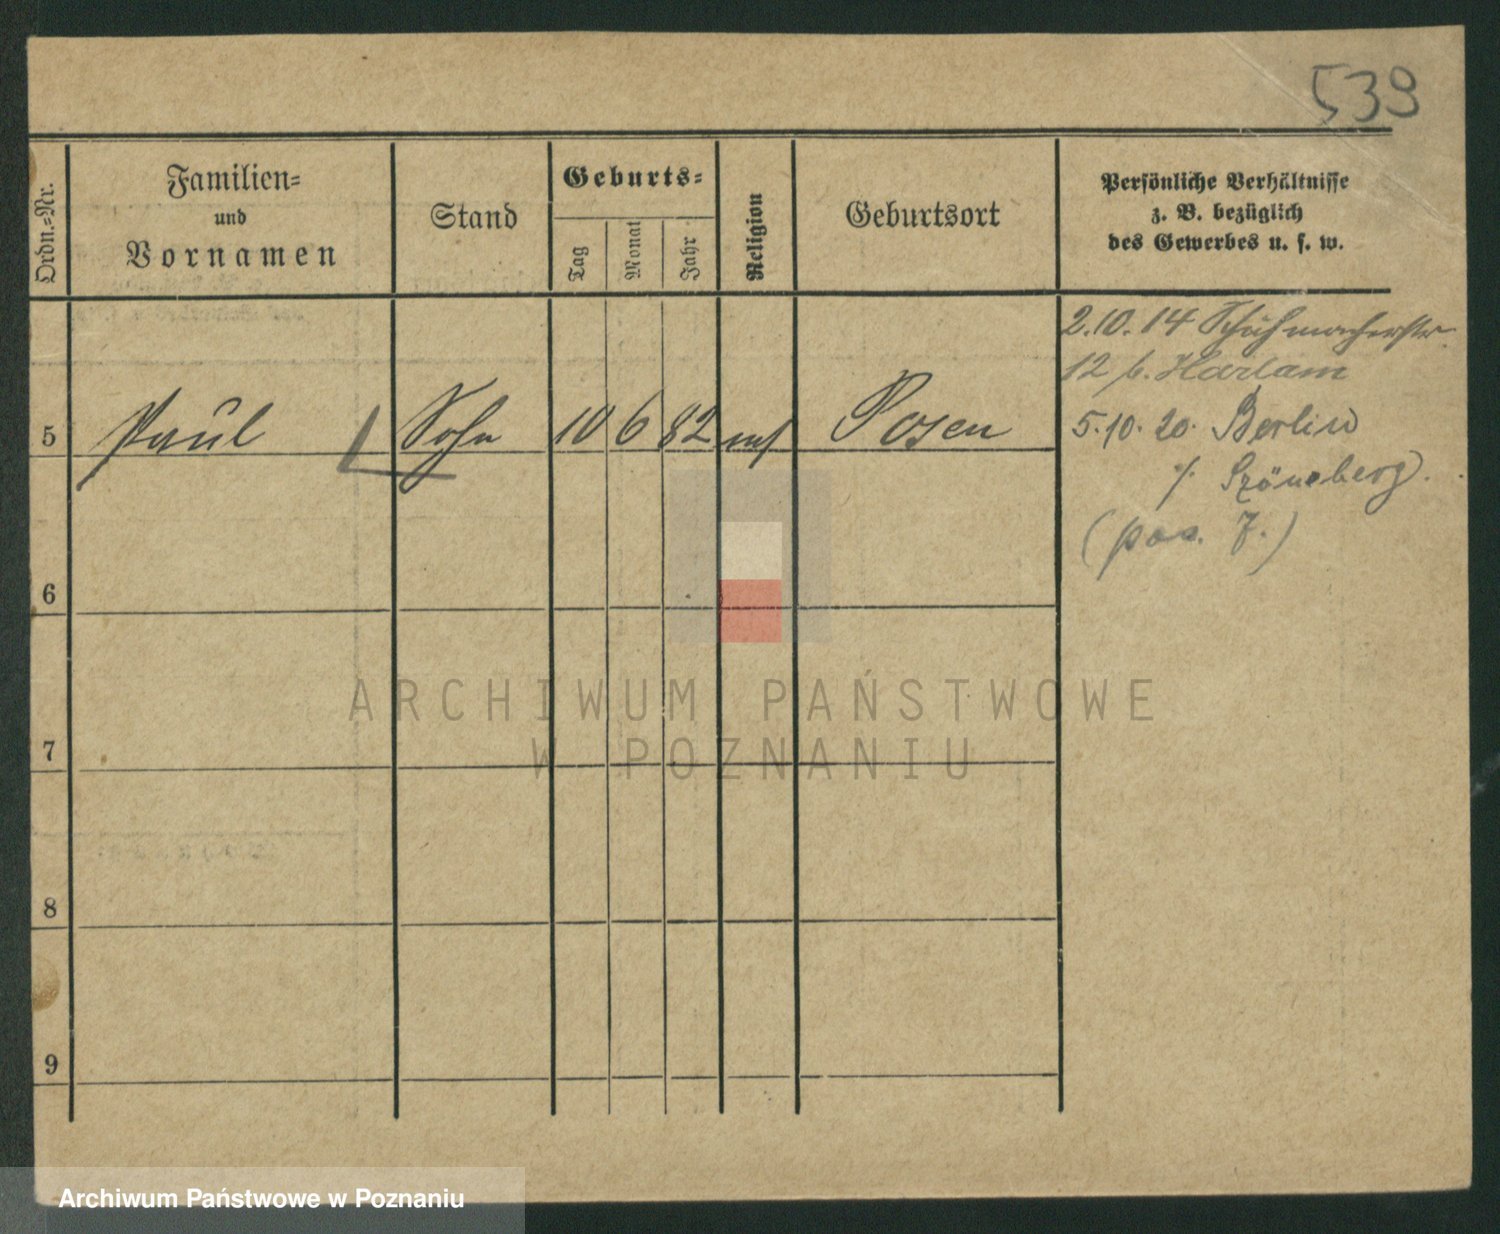 539
Ordn.-Nr.
Familien-
und
Vornamen
Stand
Geburts-
Tag
Monat
Jahr
Religion
Geburtsort
Persönliche Verhältnisse
z. B. bezüglich
des Gewerbes u. s. w.
2.10.14 Schuhmacherstr.
12 b. Harlam
5 Paul Sohn 10 6 82 Posen
5.10.20. Berlin
/. Szöneberg.
(pas. 7.)
6
7
8
9
ARCHIWUM PAŃSTWOWE
W POZNANIU
Archiwum Państwowe w Poznaniu